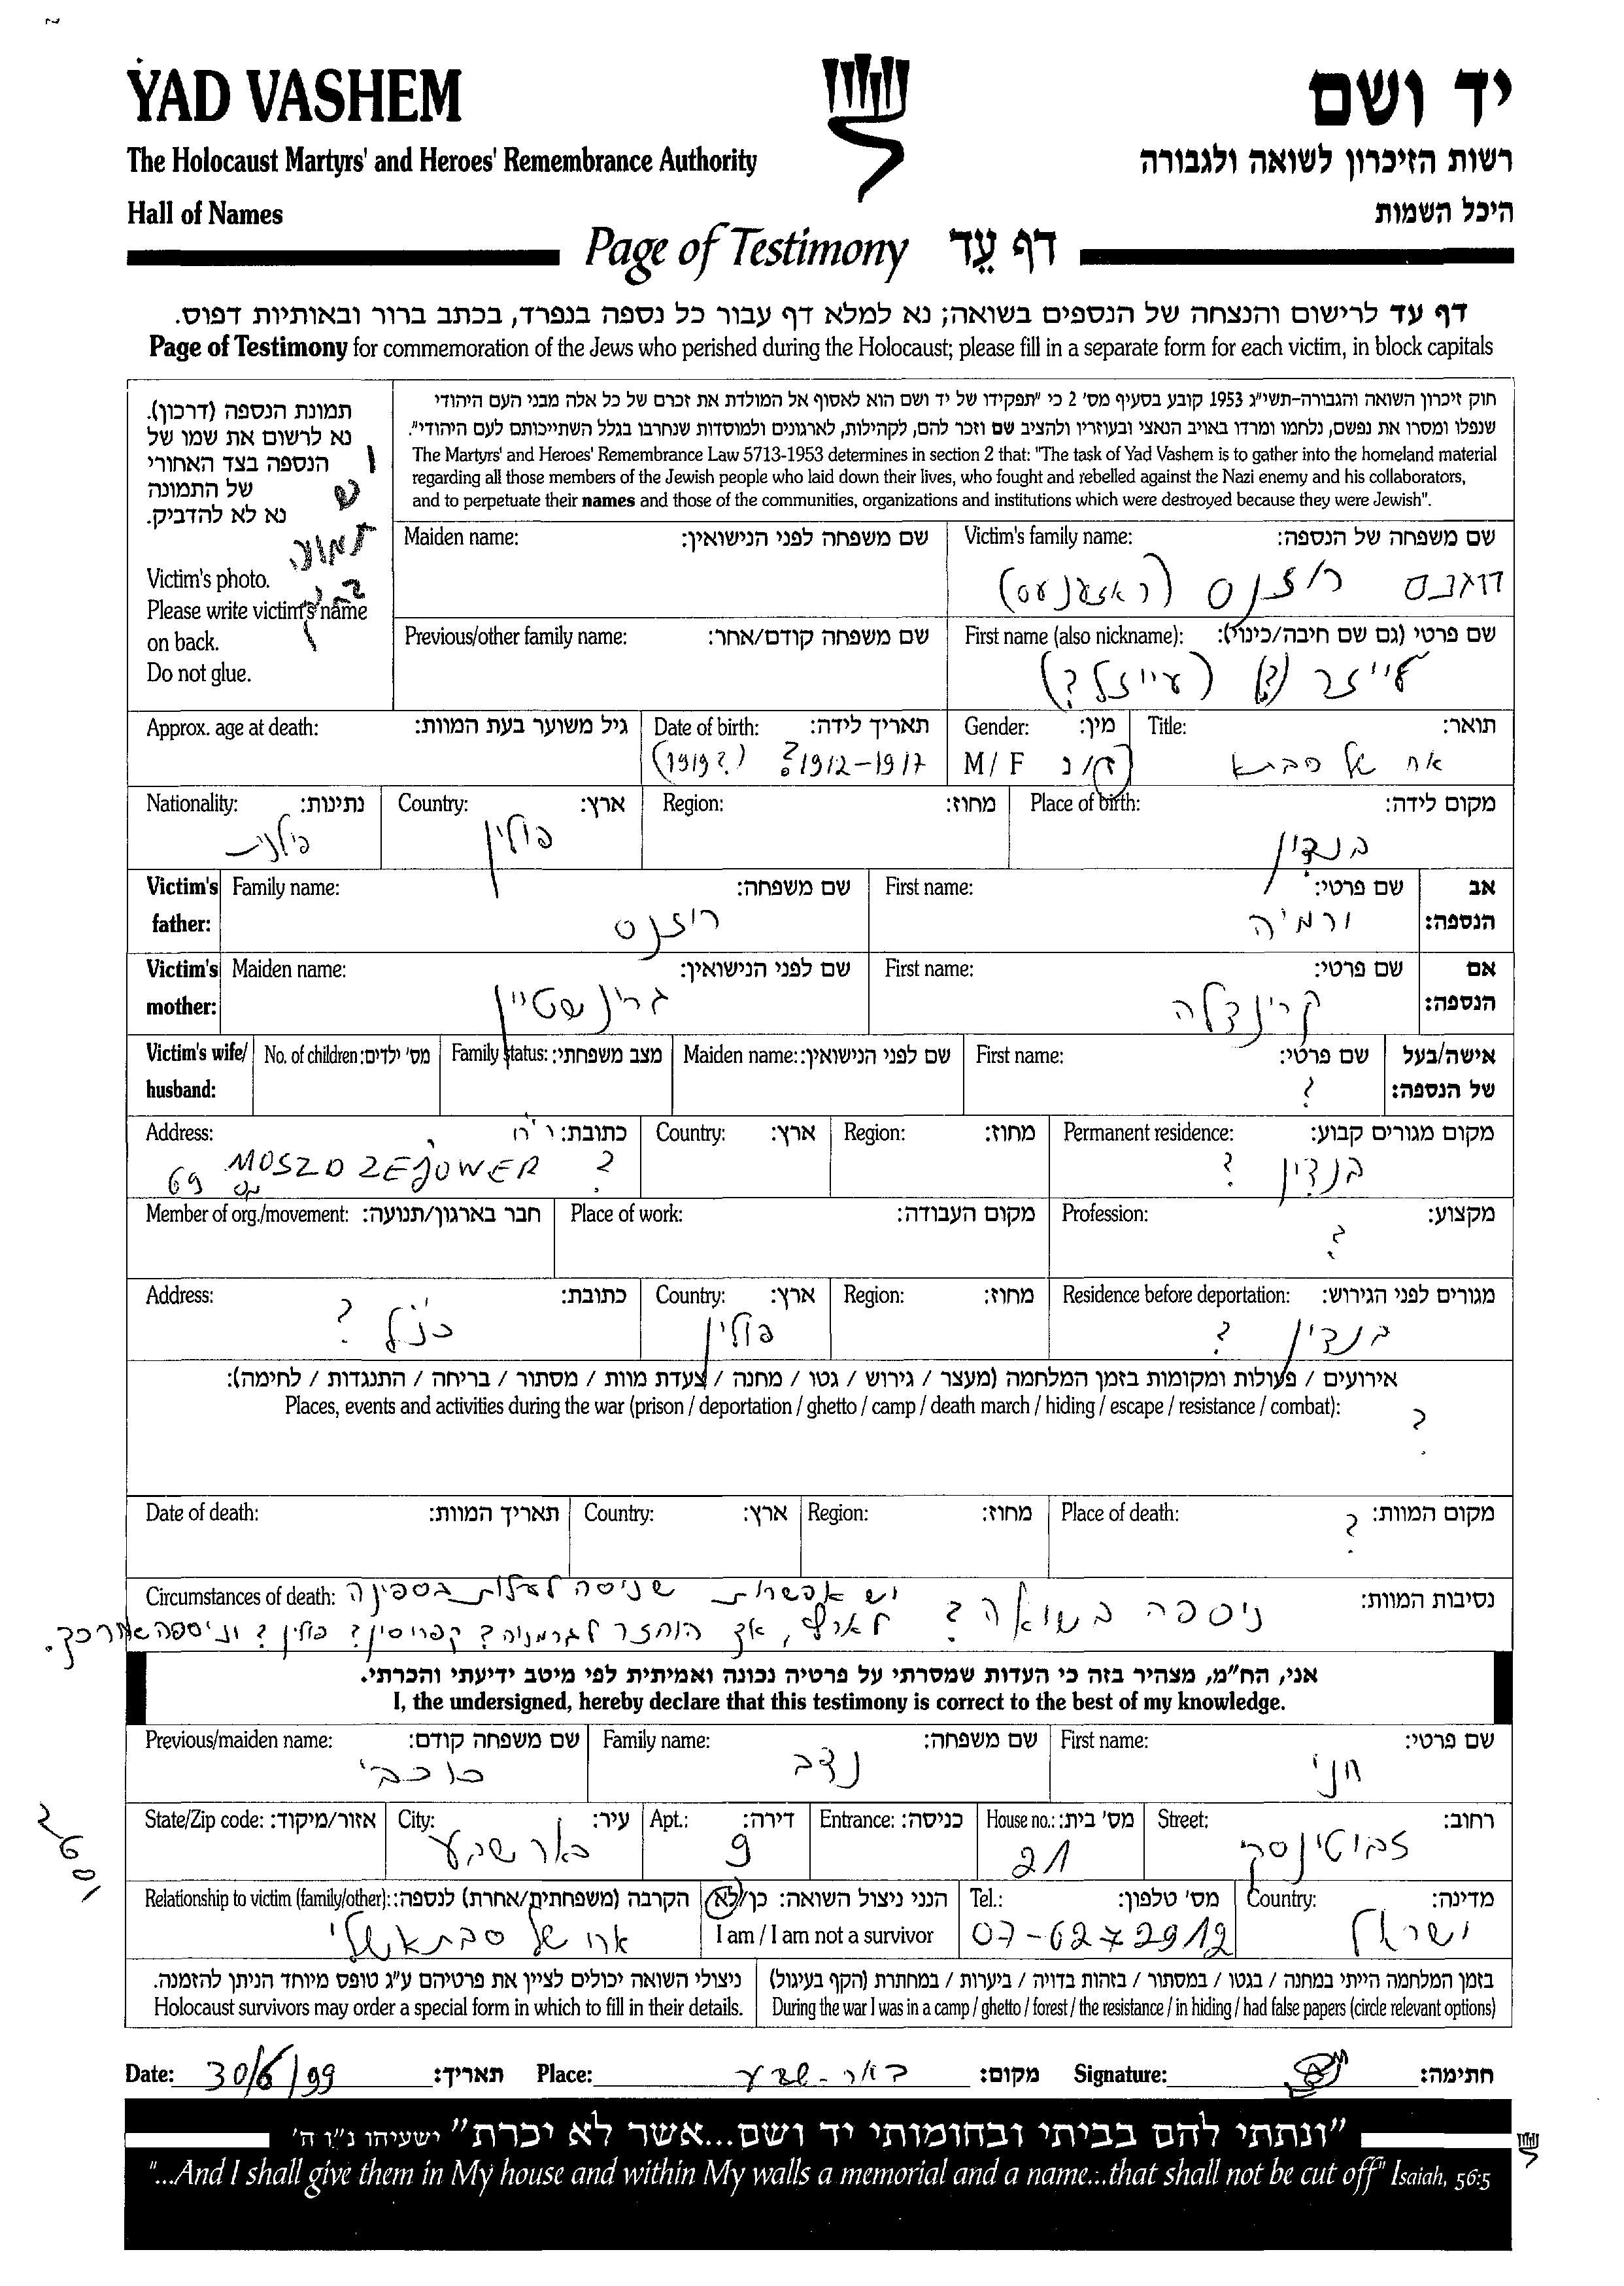 YAD VASHEM
יד ושם
The Holocaust Martyrs' and Heroes' Remembrance Authority
רשות הזיכרון לשואה ולגבורה
Hall of Names
היכל השמות
Page of Testimony דף עֵד
דף עד לרישום והנצחה של הנספים בשואה; נא למלא דף עבור כל נספה בנפרד, בכתב ברור ובאותיות דפוס.
Page of Testimony for commemoration of the Jews who perished during the Holocaust; please fill in a separate form for each victim, in block capitals
תמונת הנספה (דרכון).
נא לרשום את שמו של
הנספה בצד האחורי
של התמונה
נא לא להדביק.
יש
תמונה
Victim's photo.
Please write victim's name
on back.
Do not glue.
חוק זיכרון השואה והגבורה-תשי"ג 1953 קובע בסעיף מס' 2 כי "תפקידו של יד ושם הוא לאסוף אל המולדת את זכרם של כל אלה מבני העם היהודי
שנפלו ומסרו את נפשם, נלחמו ומרדו באויב הנאצי ובעוזריו ולהציב שם וזכר להם, לקהילות, לארגונים ולמוסדות שנחרבו בגלל השתייכותם לעם היהודי".
The Martyrs' and Heroes' Remembrance Law 5713-1953 determines in section 2 that: "The task of Yad Vashem is to gather into the homeland material
regarding all those members of the Jewish people who laid down their lives, who fought and rebelled against the Nazi enemy and his collaborators,
and to perpetuate their names and those of the communities, organizations and institutions which were destroyed because they were Jewish".
Maiden name: שם משפחה לפני הנישואין:
Victim's family name: שם משפחה של הנספה:
ריזנס (ראזענעס)
Previous/other family name: שם משפחה קודם/אחר:
First name (also nickname): שם פרטי (גם שם חיבה/כינוי):
לייזר (?) (אייזל ?)
Approx. age at death: גיל משוער בעת המוות:
Date of birth: תאריך לידה:
1912-1917 ? (1919 ?)
Gender: מין:
M / F ז/נ
Title: תואר:
אח של סבתא
Nationality: נתינות:
פולנית
Country: ארץ:
פולין
Region: מחוז:
Place of birth: מקום לידה:
בנדין
Victim's father: Family name: שם משפחה:
ריזנס
First name: שם פרטי: אב הנספה:
ירמיה
Victim's mother: Maiden name: שם לפני הנישואין:
גרינשטיין
First name: שם פרטי: אם הנספה:
קריינדלה
Victim's wife/ husband: No. of children: מס' ילדים: Family status: מצב משפחתי: Maiden name: שם לפני הנישואין: First name: שם פרטי: אישה/בעל של הנספה:
?
Address: כתובת: רח'
MOSZDZEJOWER 69 ?
Country: ארץ: Region: מחוז: Permanent residence: מקום מגורים קבוע:
בנדין ?
Member of org./movement: חבר בארגון/תנועה: Place of work: מקום העבודה: Profession: מקצוע:
?
Address: כתובת:
כנ"ל ?
Country: ארץ:
פולין
Region: מחוז: Residence before deportation: מגורים לפני הגירוש:
בנדין ?
אירועים / פעולות ומקומות בזמן המלחמה (מעצר / גירוש / גטו / מחנה / צעדת מוות / מסתור / בריחה / התנגדות / לחימה):
Places, events and activities during the war (prison / deportation / ghetto / camp / death march / hiding / escape / resistance / combat):
?
Date of death: תאריך המוות: Country: ארץ: Region: מחוז: Place of death: מקום המוות:
?
Circumstances of death: נסיבות המוות:
ניספה בשואה ? יש אפשרות שניסה לעלות בספינה
לארץ, אך הוחזר לגרמניה? קפריסין? פולין? וניספה אחר כך.
אני, הח"מ, מצהיר בזה כי העדות שמסרתי על פרטיה נכונה ואמיתית לפי מיטב ידיעתי והכרתי.
I, the undersigned, hereby declare that this testimony is correct to the best of my knowledge.
Previous/maiden name: שם משפחה קודם:
כוכבי
Family name: שם משפחה:
נדב
First name: שם פרטי:
חני
State/Zip code: אזור/מיקוד:
City: עיר:
באר שבע
Apt.: דירה:
9
Entrance: כניסה: House no.: מס' בית:
21
Street: רחוב:
ז'בוטינסקי
Relationship to victim (family/other): הקרבה (משפחתית/אחרת) לנספה:
אח של סבתא שלי
הנני ניצול השואה: כן/לא
I am / I am not a survivor
Tel.: מס' טלפון:
07-6272912
Country: מדינה:
ישראל
ניצולי השואה יכולים לציין את פרטיהם ע"ג טופס מיוחד הניתן להזמנה.
Holocaust survivors may order a special form in which to fill in their details.
בזמן המלחמה הייתי במחנה / בגטו / במסתור / בזהות בדויה / ביערות / במחתרת (הקף בעיגול)
During the war I was in a camp / ghetto / forest / the resistance / in hiding / had false papers (circle relevant options)
Date: 30/6/99 תאריך: Place: באר-שבע מקום: Signature: חתימה:
"ונתתי להם בביתי ובחומותי יד ושם...אשר לא יכרת" ישעיהו נ"ו ה'
"...And I shall give them in My house and within My walls a memorial and a name...that shall not be cut off" Isaiah, 56:5